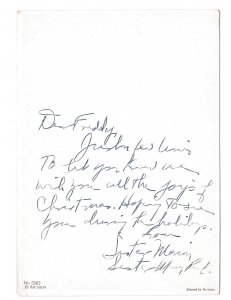 Dear Freddy,
Just a few lines
To let you know we
wish you all the joys of
Christmas. Hope to see
you during the holidays.
Love
Sister Marie
Sister Mary
No. 5083
Printed in